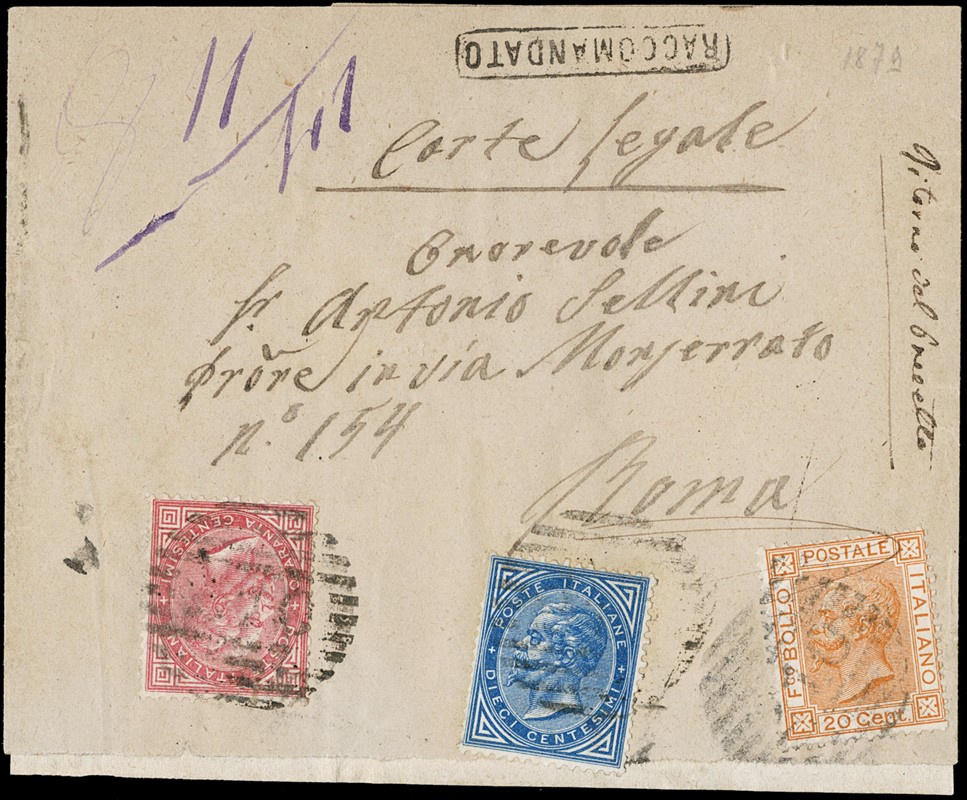 RACCOMANDATO
1879
11
Carte legale
Onorevole
Sr. Antonio Sellini
Prōre in via Monserrato
n.° 154
Roma
Ritorno del
QUARANTA CENTESIMI
POSTE ITALIANE
POSTE ITALIANE
DIECI CENTESIMI
F.co BOLLO POSTALE ITALIANO
20 Cent.